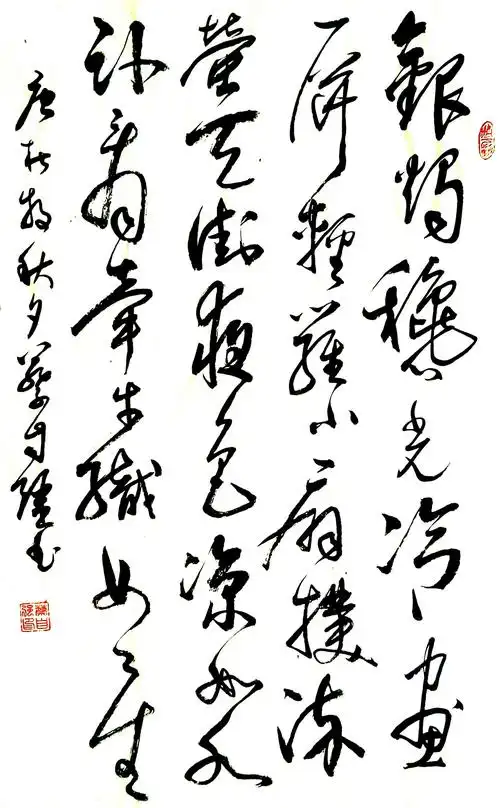 銀燭穐光冷畫
屏輕羅小扇撲流
螢天街夜色涼如水
卧看牽牛織女星
唐杜牧秋夕書